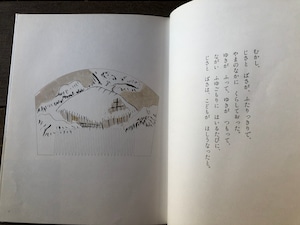 むかし、
じさと ばさが、ふたりっきりで、
やまのなかに くらしておった。
ゆきが ふって、ゆきが つもって、
ながい ふゆごもりに はいるたびに、
じさと ばさは、こどもが ほしうなったと。